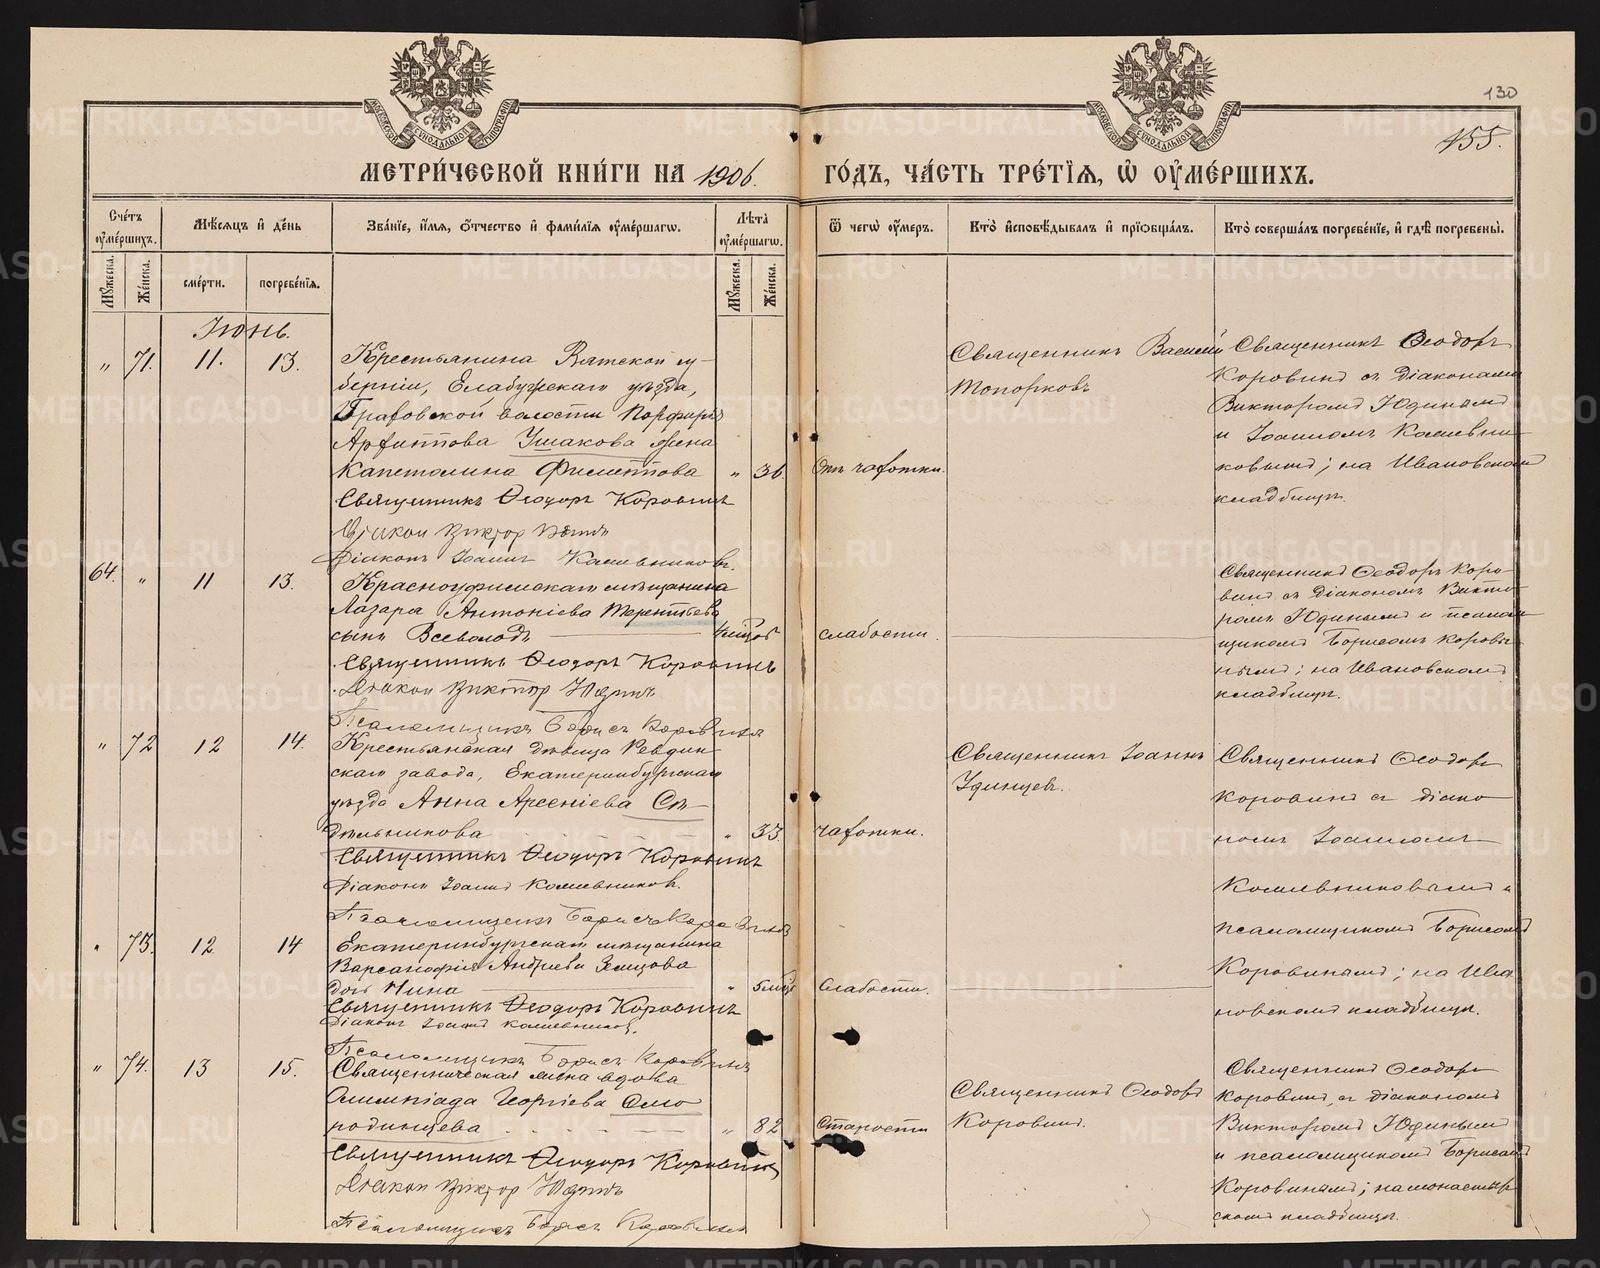 130
155.
МЕТРИЧЕСКОЙ КНИГИ НА 1906 ГОДЪ, ЧАСТЬ ТРЕТІЯ, Ѡ ОУМЕРШИХЪ.
Счетъ оумершихъ.
Мѣсяцъ и день
Званіе, имя, отчество и фамилія оумершагѡ.
Лѣта оумершагѡ.
Ѿ чегѡ оумеръ.
Кто исповѣдывалъ и пріобщалъ.
Кто совершалъ погребеніе, и гдѣ погребены.
Мужеска.
Женска.
смерти.
погребенія.
Мужеска.
Женска.
Іюнь.
„ 71. 11. 13.
Крестьянина Вятской гу-
берніи, Елабужскаго уѣзда,
Граховской волости Порфирія
Архиппова Ушакова жена
Капетолина Филиппова „ 36. Отъ чахотки.
Священникъ Ѳеодоръ Коровинъ
Діаконъ Викторъ Юдинъ
Діаконъ Іоаннъ Кашевниковъ.
Священникъ Василій
Топорковъ
Священникъ Ѳеодоръ
Коровинъ съ діаконами
Викторомъ Юдинымъ
и Іоанномъ Кашевни-
ковымъ; на Ивановскомъ
кладбищѣ.
64. „ 11 13.
Красноуфимскаго мѣщанина
Лазаря Антоніева Терентьева
сынъ Всеволодъ слабости.
Священникъ Ѳеодоръ Коровинъ
Діаконъ Викторъ Юдинъ
Псаломщикъ Борисъ Коровинъ
Священникъ Ѳеодоръ Коро-
винъ съ діакономъ Викто-
ромъ Юдинымъ и псалом-
щикомъ Борисомъ Корови-
нымъ; на Ивановскомъ
кладбищѣ.
„ 72 12 14.
Крестьянская дѣвица Ревдин-
скаго завода, Екатеринбургскаго
уѣзда Анна Арсеніева Сѣ-
дѣльникова „ 33. чахотки.
Священникъ Ѳеодоръ Коровинъ
Діаконъ Іоаннъ Кашевниковъ.
Псаломщикъ Борисъ Коровинъ
Священникъ Іоаннъ
Удинцевъ.
Священникъ Ѳеодоръ
Коровинъ съ діако
номъ Іоанномъ
Кашевниковымъ и
псаломщикомъ Борисомъ
Коровинымъ; на Ива
новскомъ кладбищѣ.
„ 73. 12 14
Екатеринбургскаго мѣщанина
Варсанофія Андреева Земцова
дочь Нина „ 5 мѣс. Слабости.
Священникъ Ѳеодоръ Коровинъ
Діаконъ Іоаннъ Кашевниковъ.
Псаломщикъ Борисъ Коровинъ
„ 74. 13 15.
Священническая жена вдова
Олимпіада Георгіева Смо
родинцева „ 82 Старости
Священникъ Ѳеодоръ Коровинъ
Діаконъ Викторъ Юдинъ
Псаломщикъ Борисъ Коровинъ
Священникъ Ѳеодоръ
Коровинъ.
Священникъ Ѳеодоръ
Коровинъ, съ діакономъ
Викторомъ Юдинымъ
и псаломщикомъ Борисомъ
Коровинымъ; на монастыр
скомъ кладбищѣ.
METRIKI.GASO-URAL.RU